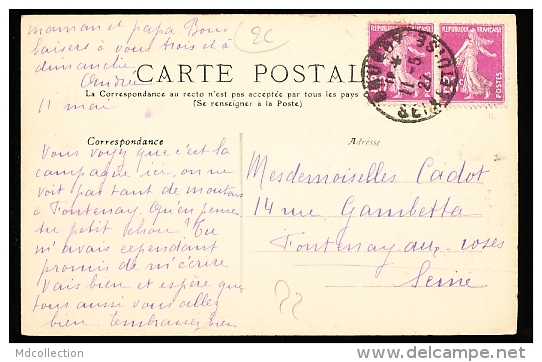 maman et papa Bons
baisers à vous trois et à
dimanche
André
11 mai
2C
CARTE POSTALE
La Correspondance au recto n'est pas acceptée par tous les pays
(Se renseigner à la Poste)
RÉPUBLIQUE FRANÇAISE
RÉPUBLIQUE FRANÇAISE
POSTES
11-5
SEINE
Correspondance
Vous voyez que c'est la
campagne ici, on ne
voit pas tant de moutons
à Fontenay. Qu'en pense
tu petit Tu
m'avais cependant
promis de m'écrire
Vais bien et espère que
tous aussi vous allez
bien. Embrassez bien
Adresse
Mesdemoiselles Cadot
14 rue Gambetta
Fontenay aux roses
Seine
Mdcollection
http://www.delcampe.net